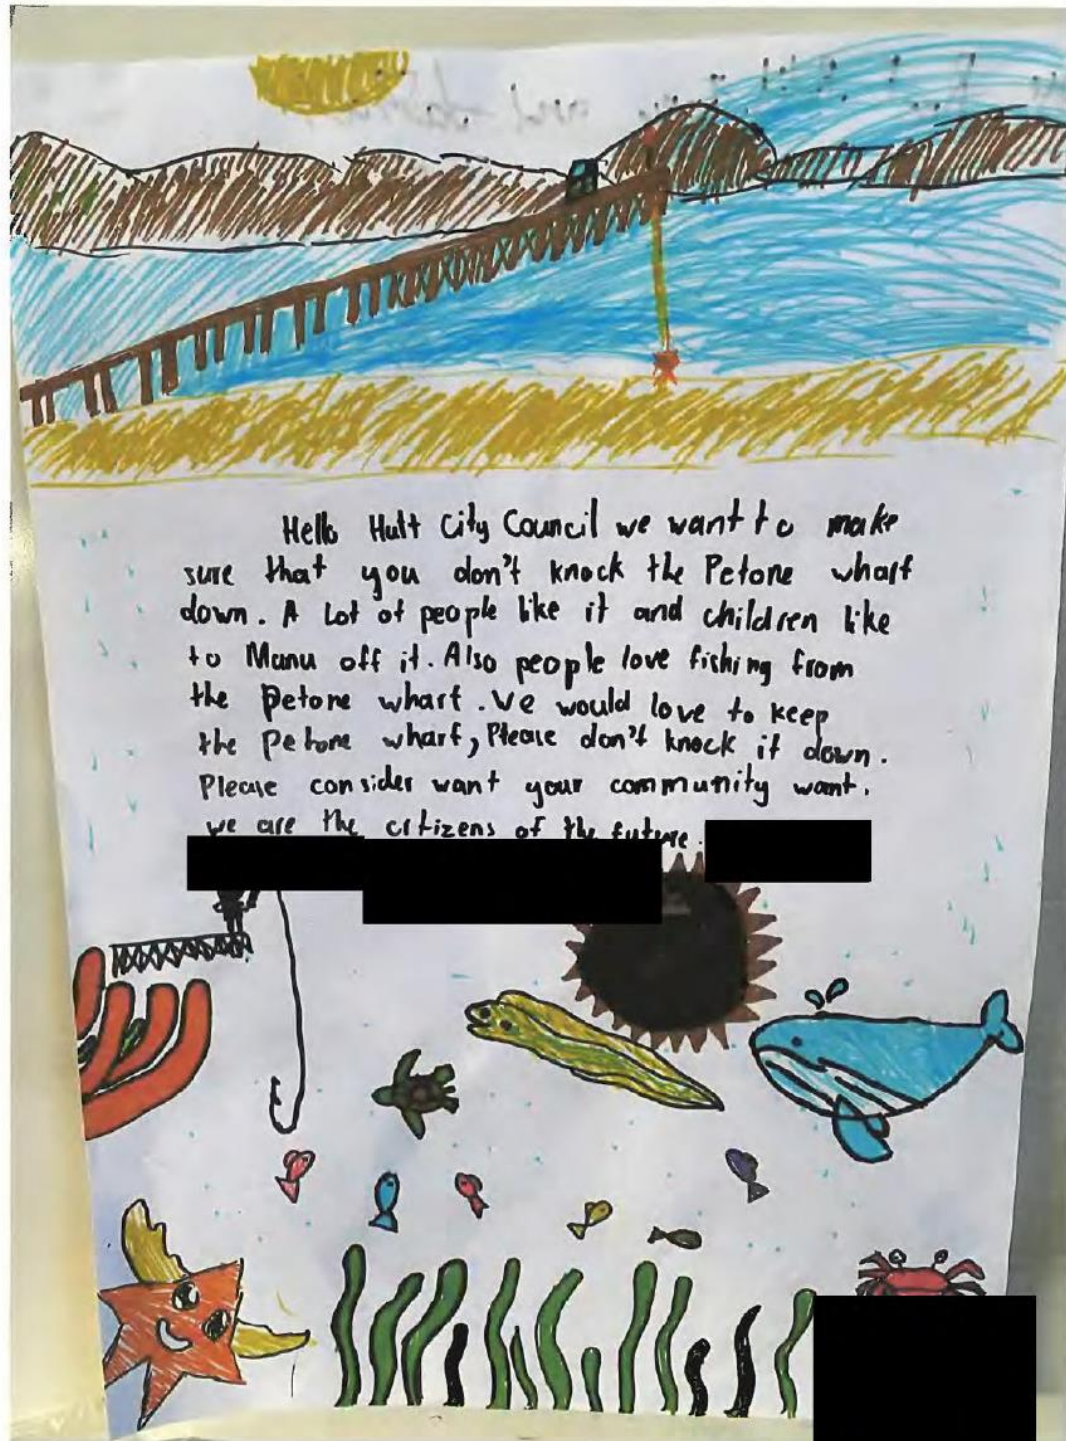 Hello Hutt City Council we want to make
sure that you don't knock the Petone wharf
down. A Lot of people like it and children like
to Manu off it. Also people love fishing from
the Petone wharf. We would love to keep
the Petone wharf, Please don't knock it down.
Please consider want your community want.
we are the citizens of the future.